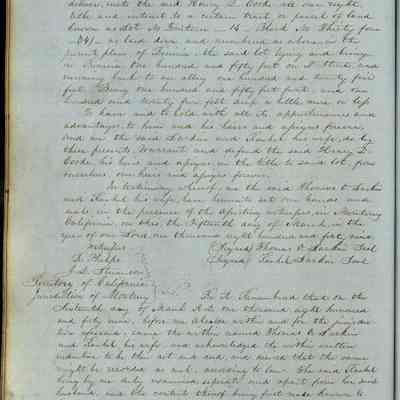 deliver, unto the said Henry D. Cooke all our right,
title and interest to a certain tract or parcel of land
known as Lot No Fourteen - 14 - Block No Thirty four
-34- as laid down and numbered as above in the
present plan of Benicia the said lot lying and being
in Benicia one hundred and fifty feet on Street, and
running back to an alley one hundred and twenty five
feet, Being one hundred and fifty feet front, and one
hundred and twenty five feet deep a little more or less
To have and to hold with all its appurtenances and
advantages to him and his heirs and assigns forever,
And we the said Larkin and Rachel his wife, do by
these presents, Warrant and defend the said Henry D.
Cooke his heirs and assigns, in the title to said lot, from
ourselves our heirs and assigns forever.
In testimony whereof, we the said Thomas O. Larkin
and Rachel his wife, have hereunto set our hands and
seals, in the presence of the attesting witnesses, in Monterey
California, on this, the Fifteenth day of March, in the
year of our Lord, one thousand eight hundred and forty nine,
Witnesses (Signed) Thomas O. Larkin Seal
(Signed) Rachel Larkin Seal
Territory of California
Jurisdiction of Monterey Be It Remembered that on the
Sixteenth day of March A.D. one thousand eight hundred
and forty nine, before me Alcalde within and for the jurisdic-
tion aforesaid, came the within named Thomas O. Larkin
and Rachel his wife, and acknowledged the within written
indenture to be their act and deed, and desired that the same
might be recorded as such, according to law. The said Rachel
being by me duly examined separate and apart from her said
husband, and the contents thereof being first made known to